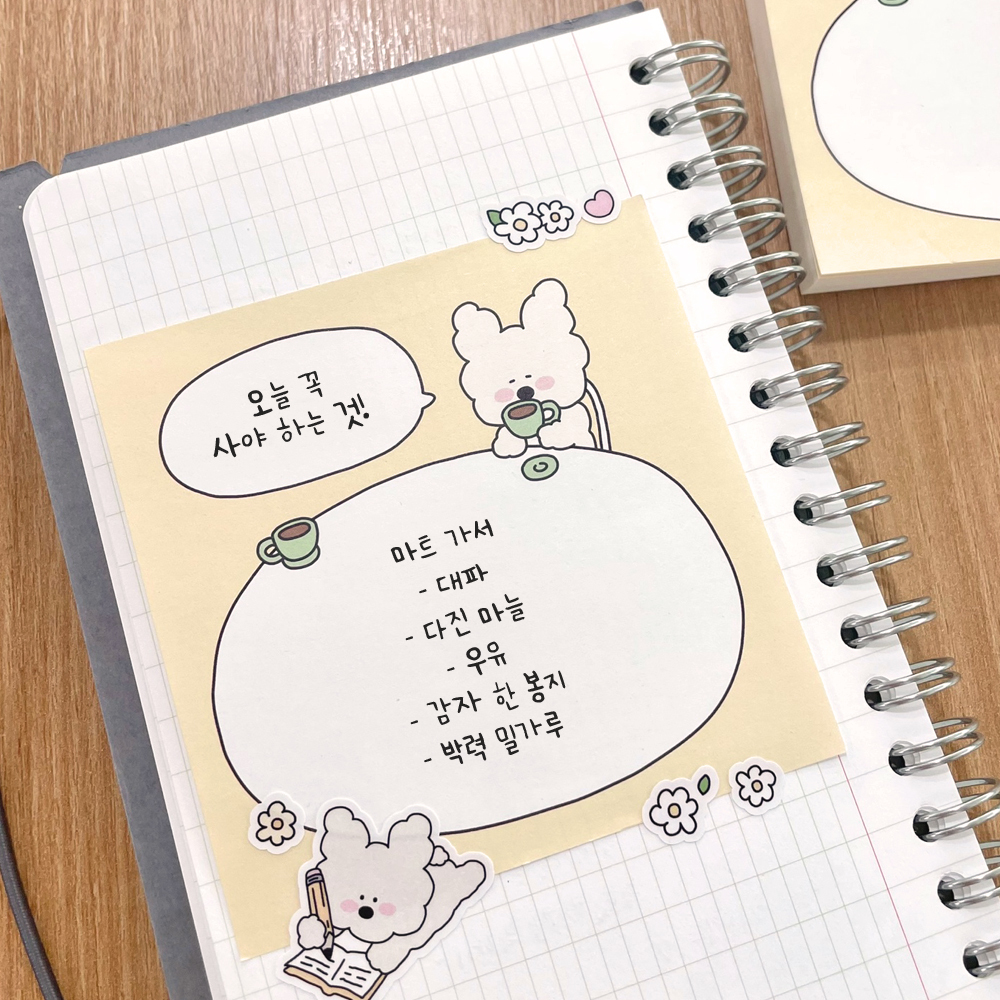 오늘 꼭
사야 하는 겟!
마트 가서
- 대파
- 다진 마늘
- 우유
- 감자 한 봉지
- 박력 밀가루